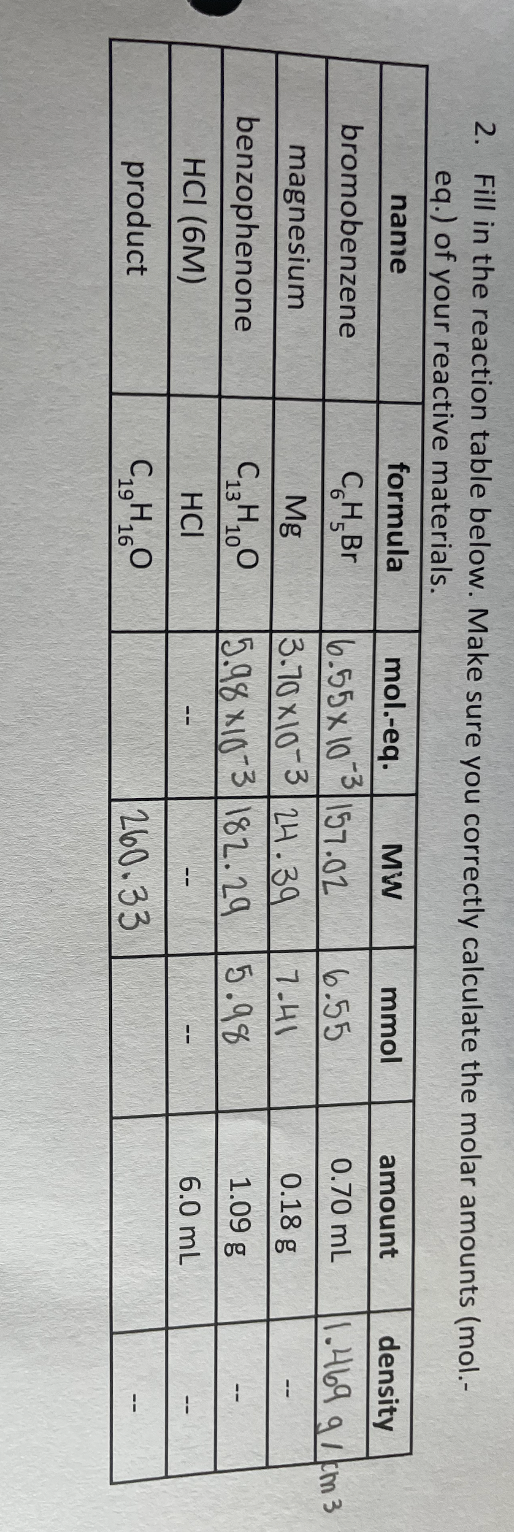 2. Fill in the reaction table below. Make sure you correctly calculate the molar amounts (mol.-
eq.) of your reactive materials.
name formula mol.-eq. MW mmol amount density
bromobenzene C₆H₅Br 6.55 x 10⁻³ 157.02 6.55 0.70 mL 1.469 g/cm³
magnesium Mg 3.70 x10⁻³ 24.39 7.41 0.18 g --
benzophenone C₁₃H₁₀O 5.98 x10⁻³ 182.29 5.98 1.09 g --
HCl (6M) HCl -- -- -- 6.0 mL --
product C₁₉H₁₆O 260.33 --